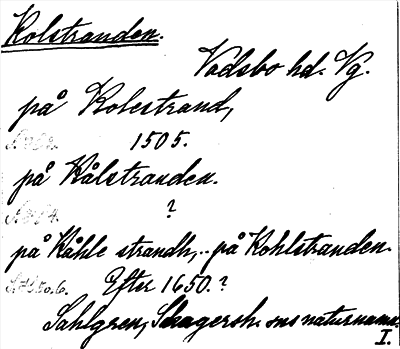 Kolstranden.
Vadsbo hd. Vg.
på Kolestrand,
1505.
på Kålstranden.
?
på Kåhle strandh, .. på Kohlstranden.
Efter 1650.?
Sahlgren, Skagersh. sns naturnamn.
I.